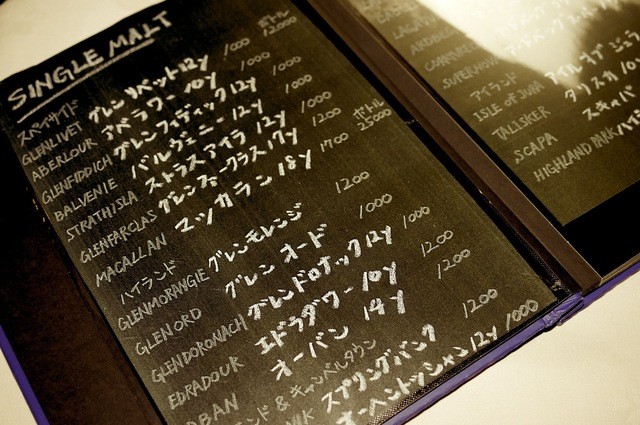 SINGLE MALT
スペイサイド ボトル
GLENLIVET グレンリベット12y 1000 12000
ABERLOUR アベラワー 10y 1000
GLENFIDDICH グレンフィディック12y 1000
BALVENIE バルヴェニー 12y 1000
STRATHISLA ストラスアイラ 12y 1000
GLENFARCLAS グレンファークラス17y 1200 ボトル
MACALLAN マッカラン 18y 1700 25000
ハイランド
GLENMORANGIE グレンモレンジ 1200
GLEN ORD グレン オード 1000
GLENDORONACH グレンドロナック12y 1000
EDRADOUR エドラダワー 10y 1200
OBAN オーバン 14y 1200
ンド & キャンベルタウン
スプリングバンク 1200
オーヘントッシャン12y 1000
アイランド
ISLE OF JURA アイル オブ ジュラ
TALISKER タリスカ 10y
SCAPA スキャパ
HIGHLAND PARK ハイ